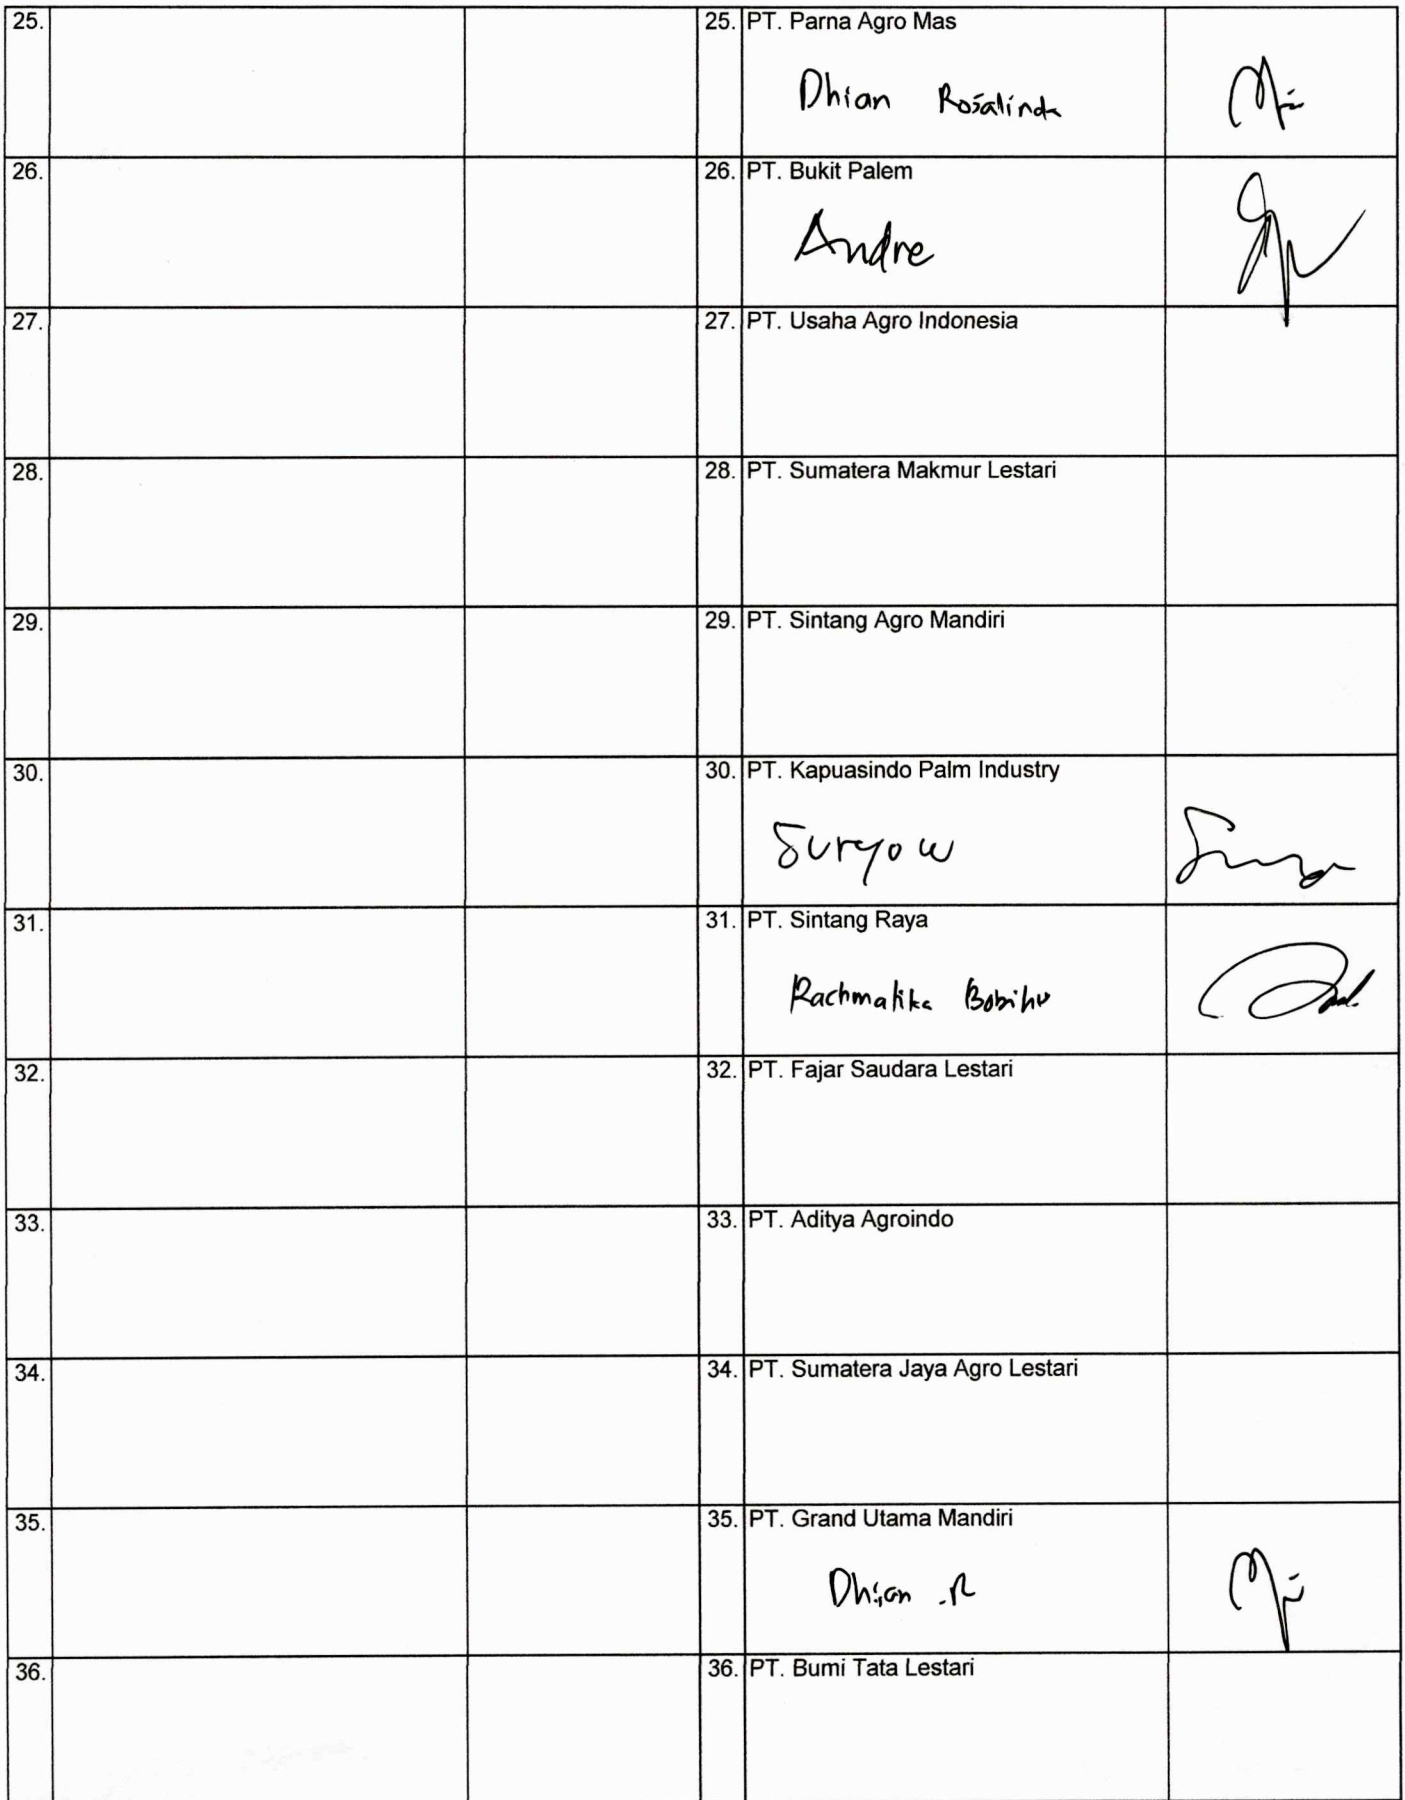 25.
25. PT. Parna Agro Mas
Dhian Rosalinda
26.
26. PT. Bukit Palem
Andre
27.
27. PT. Usaha Agro Indonesia
28.
28. PT. Sumatera Makmur Lestari
29.
29. PT. Sintang Agro Mandiri
30.
30. PT. Kapuasindo Palm Industry
Suryo W
31.
31. PT. Sintang Raya
Rachmatika
32.
32. PT. Fajar Saudara Lestari
33.
33. PT. Aditya Agroindo
34.
34. PT. Sumatera Jaya Agro Lestari
35.
35. PT. Grand Utama Mandiri
Dhian .R
36.
36. PT. Bumi Tata Lestari